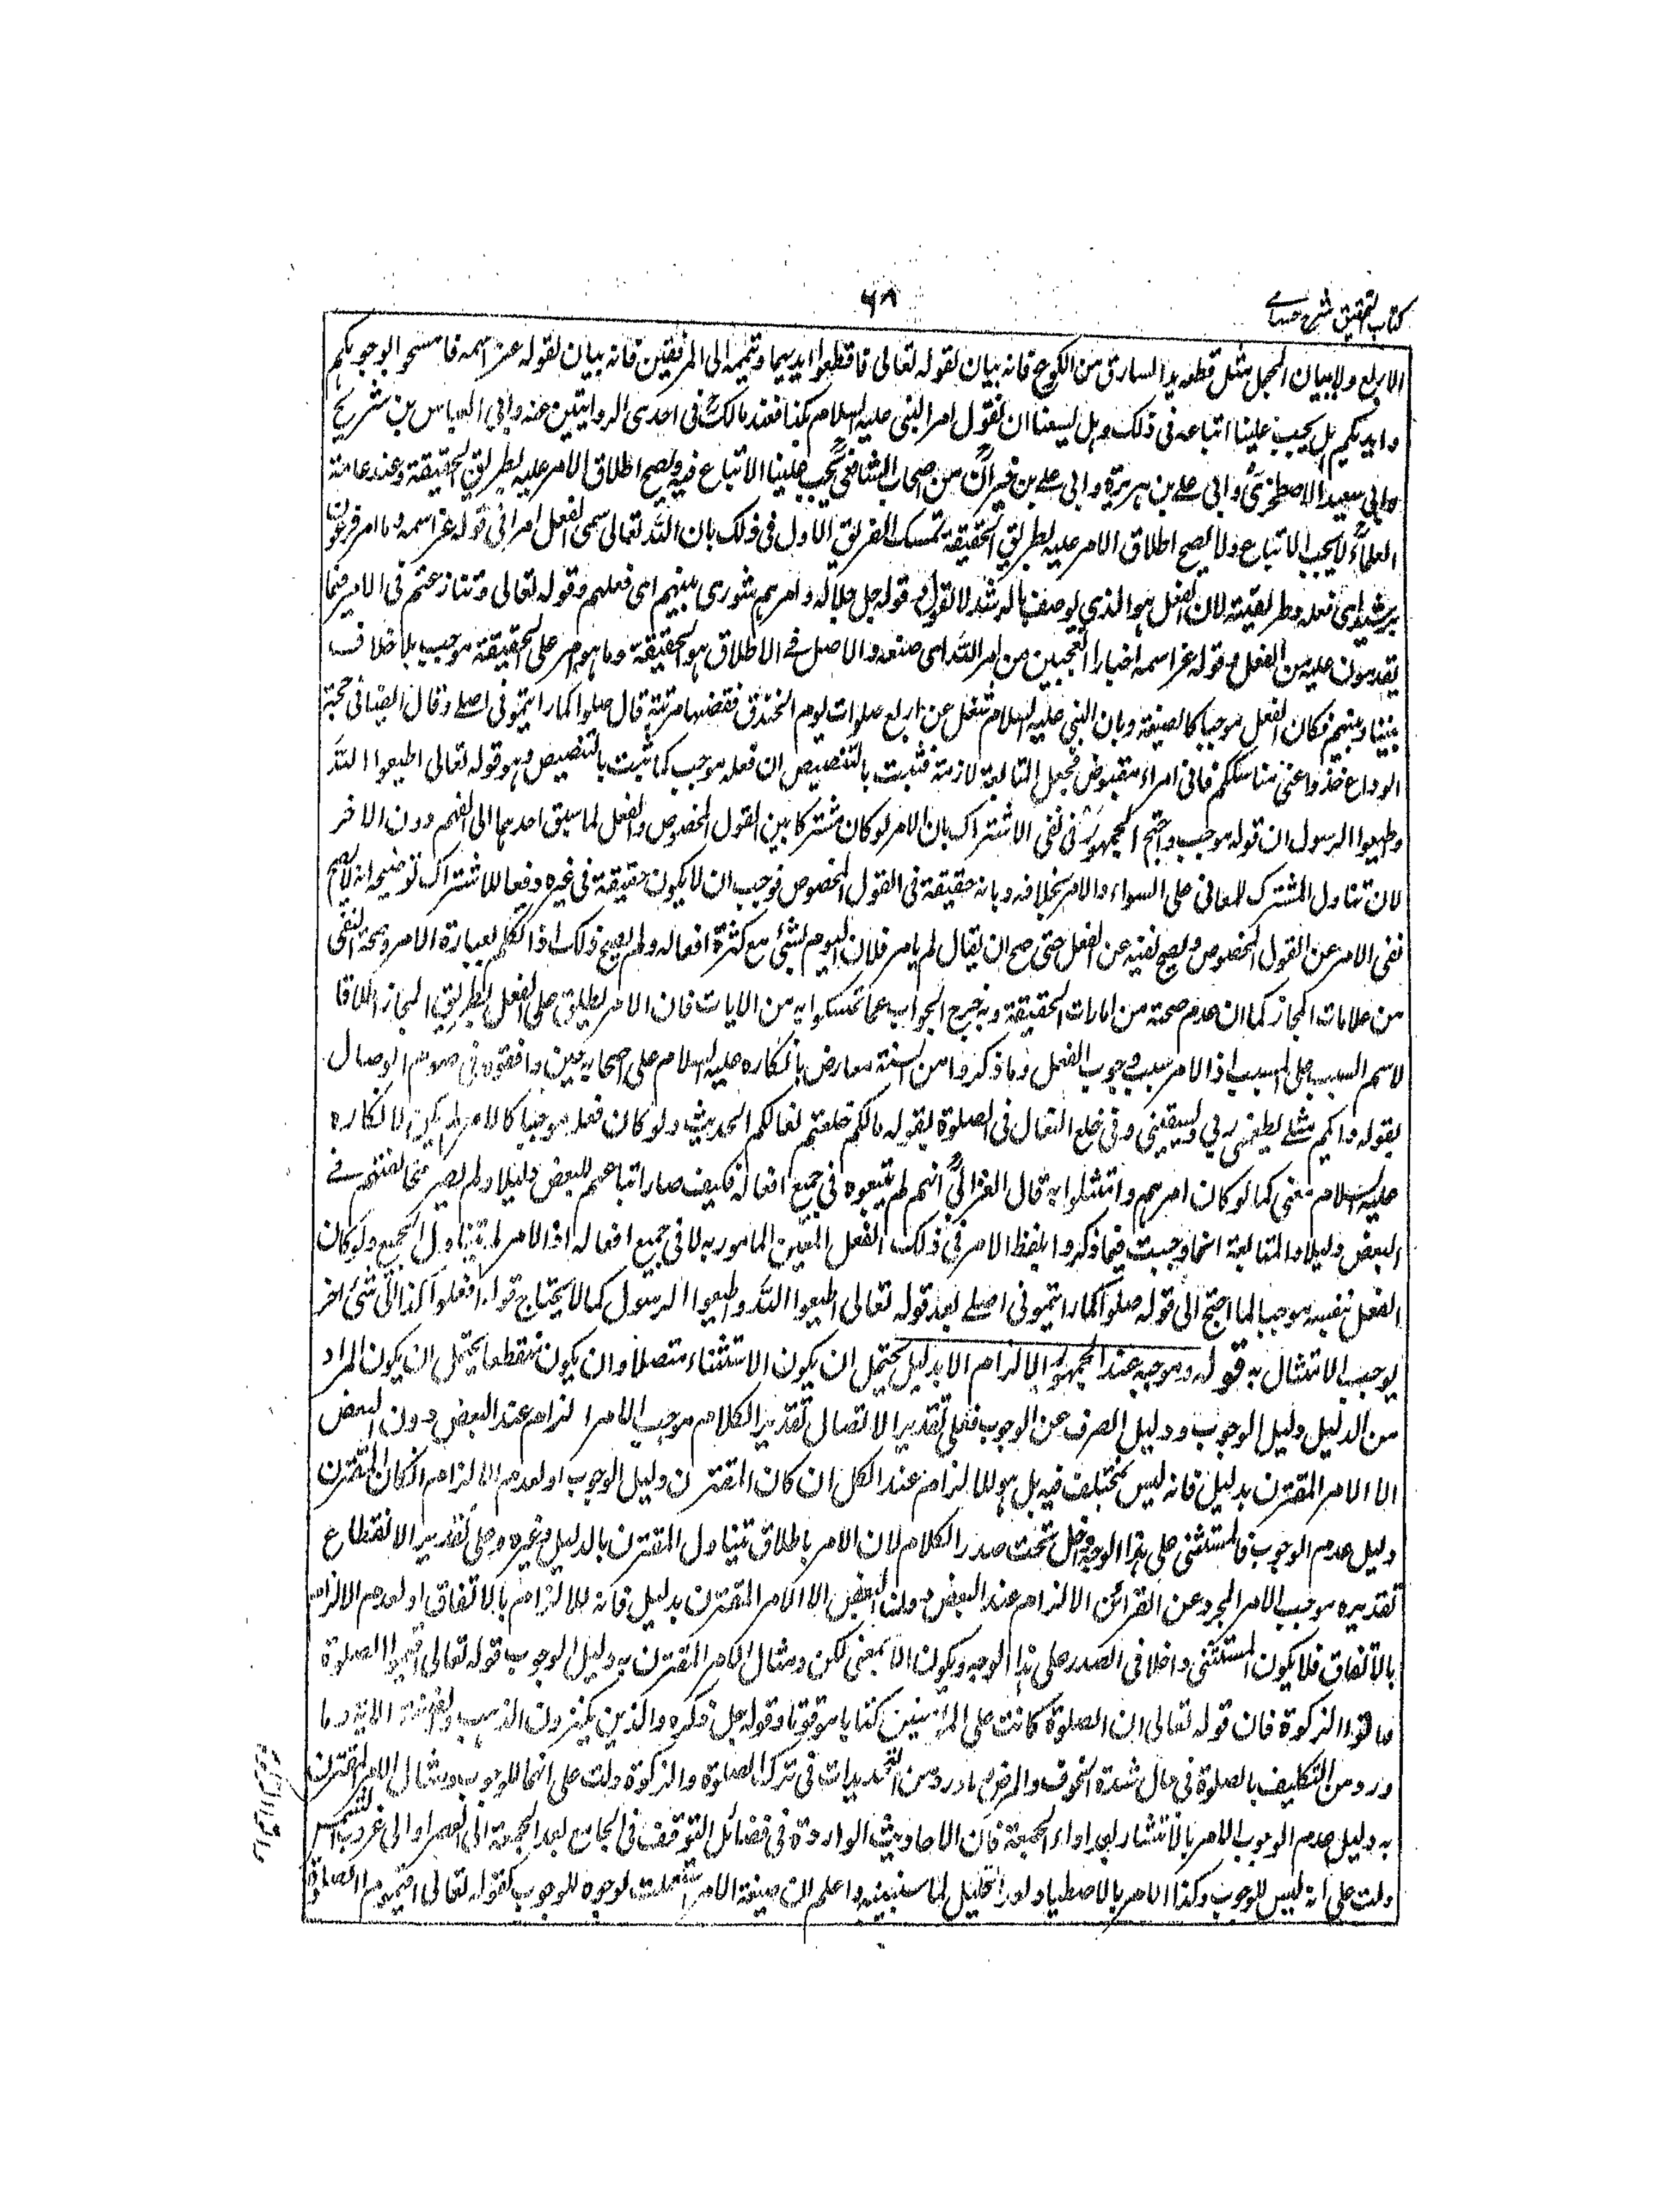 كتاب التحقيق شرح حسامے
٦٨
الاربع ولا ببيان المجمل مثل قطعه يد السارق من الكوع فانه بيان لقوله تعالى فاقطعوا ايديهما وتيممه الى المرفقين فانه بيان لقوله عز اسمه فامسحوا بوجوهكم
وايديكم هل يجب علينا اتباعه فى ذلك وهل يسعنا ان نقول امر النبى عليه السلام بكذا فعند مالك فى احدى الروايتين عنه وابي العباس بن شريح
وابي سعيد الاصطخرى وابي على بن ابي هريرة وابي على بن خيران من اصحاب الشافعى يجب علينا الاتباع فيه ويصح اطلاق الامر عليه بطريق الحقيقة وعند عامة
العلماء لا يجب الاتباع ولا يصح اطلاق الامر عليه بطريق الحقيقة تمسك الفريق الاول فى ذلك بان الله تعالى سمى الفعل امرا فى قوله عز اسمه وما امر فرعون
برشيد اى فعله وطريقته لان الفعل هو الذي يوصف بالرشد لا القول وقوله جل جلاله وامرهم شورى بينهم اى فعلهم وقوله تعالى وتنازعتم فى الامر فيما
يقدمون عليه من الفعل وقوله عز اسمه اخبارا اتعجبين من امر الله اى صنعه والاصل فے الاطلاق هو الحقيقة وما هو امر على الحقيقة موجب بلا خلاف
بيننا وبينهم فكان الفعل موجبا كالصيغة وبان النبى عليه السلام شغل عن اربع صلوات يوم الخندق فقضها مرتبة قال صلوا كما رايتمونى اصلے وقال ايضا فى حجة
الوداع خذوا عنى مناسككم فانى امراء مقبوض فجعل المتابعة لازمة فثبت بالتنصيص ان فعله موجب كما ثبت بالتنصيص وهو قوله تعالى اطيعوا الله
واطيعوا الرسول ان قوله موجب واحتج الجمهور فى نفى الاشتراك بان الامر لو كان مشتركا بين القول المخصوص والفعل لما سبق احدهما الى الفهم دون الاخر
لان تناول المشترك للمعانى على السواء والامر بخلافه وبانه حقيقة فى القول المخصوص فوجب ان لا يكون حقيقة فى غيره دفعا للاشتراك توضيحه انه لا يصح
نفى الامر عن القول المخصوص ويصح نفيه عن الفعل حتى صح ان يقال لم يامر فلان اليوم بشئ مع كثرة افعاله ولم يصح ذلك اذا تكلم بعبارة الامر وصحة النفى
من علامات المجاز كما ان عدم صحته من امارات الحقيقة وبه خرج الجواب عما تمسكوا به من الايات فان الامر يطلق على الفعل بطريق المجاز اطلاقا
لاسم السبب على المسبب اذ الامر سبب وجوب الفعل وما ذكروا من السنة معارض بانكاره عليه السلام على اصحابه حين وافقوه فى صوم الوصال
بقوله وايكم مثلے يطعمنى ربي ويسقينى وفى خلع النعال فى الصلوة بقوله مالكم خلعتم نعالكم الحديث ولو كان فعله موجبا كالامر لم يكن لانكاره
عليه السلام معنى كما لو كان امرهم وامتثلوا به قال الغزالي انهم لم يتبعوه فى جميع افعاله فكيف صار اتباعهم للبعض دليلا ولم يصر مخالفتهم فے
البعض دليلا والمتابعة انما وجبت فيما ذكروا بلفظ الامر فى ذلك الفعل المعين المامور به لا فى جميع افعاله اذ الامر لم يتناول الجميع ولو كان
الفعل بنفسه موجبا لما احتج الى قوله صلوا كما رايتمونى اصلے بعد قوله تعالى اطيعوا الله واطيعوا الرسول كما لا يحتاج قوله افعلوا كذا الى شئ اخر
يوجب الامتثال به قوله وموجبه عند الجمهور الالزام الا بدليل يحتمل ان يكون الاستثناء متصلا وان يكون منقطعا يحتمل ان يكون المراد
من الدليل دليل الوجوب ودليل الصرف عن الوجوب فعلى تقدير الاتصال تقدير الكلام موجب الامر الالزام عند البعض دون البعض
الا الامر المقترن بدليل فانه ليس مختلف فيه بل هو للالزام عند الكل ان كان المقترن دليل الوجوب او لعدم الالزام ان كان المقترن
دليل عدم الوجوب فالمستثنى على هذا الوجه داخل تحت صدر الكلام لان الامر باطلاق تناول المقترن بالدليل وغيره وعلى تقدير الانقطاع
تقديره موجب الامر المجرد عن القرائن الالزام عند البعض دون البعض الا الامر المقترن بدليل فانه للالزام بالاتفاق او لعدم الالزام
بالاتفاق فلا يكون المستثنى داخلا فى الصدر على هذا الوجه ويكون الا بمعنى لكن ومثال الامر المقترن به دليل الوجوب قوله تعالى اقيموا الصلوة
واتوا الزكوة فان قوله تعالى ان الصلوة كانت على المؤمنين كتابا موقوتا وقوله جل ذكره والذين يكنزون الذهب والفضة الاية وما
ورد من التكليف بالصلوة فى حال شدة الخوف والمرض وما ورد من التهديدات فى ترك الصلوة والزكوة دلت على انهما للوجوب ومثال الامر المقترن
به دليل عدم الوجوب الامر بالانتشار بعد اداء الجمعة فان الاحاديث الواردة فى فضائل التوقف فى الجامع بعد الجمعة الى العصر او الى غروب الشمس
دلت على انه ليس للوجوب وكذا الامر بالاصطياد بعد التحليل لما سنبينه واعلم ان صيغة الامر استعملت لوجوه للوجوب كقوله تعالى اقيموا الصلوة